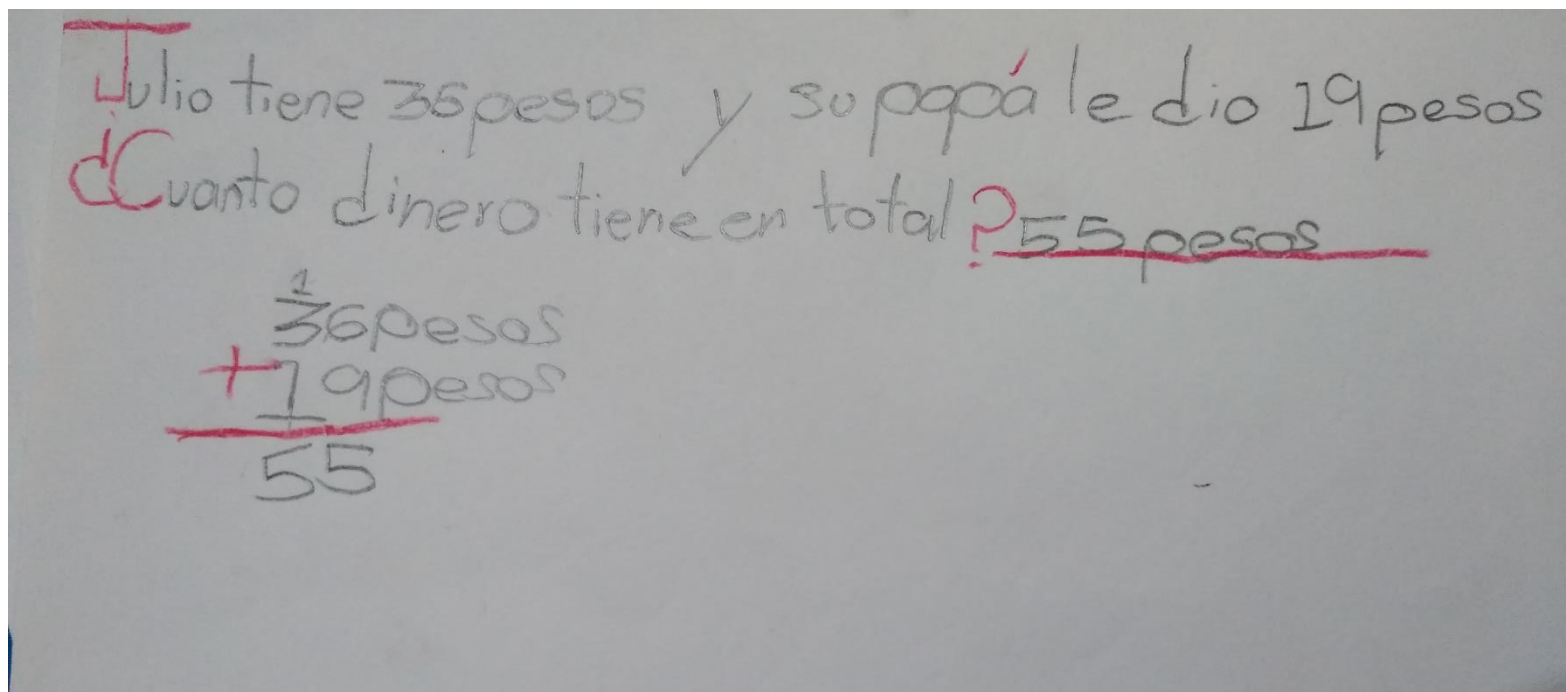 Julio tiene 36 pesos y su papá le dio 19 pesos
¿Cuanto dinero tiene en total? 55 pesos
1
36 pesos
+ 19 pesos
55